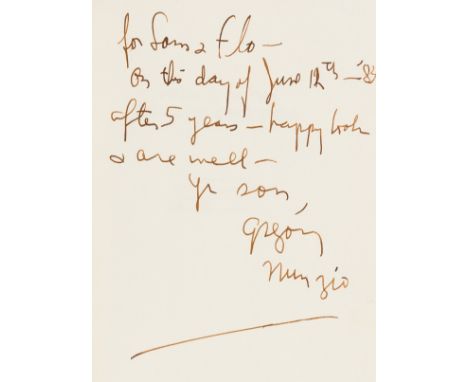 for Sam & Flo —
on this day of June 12th — '83
after 5 years — happy both
& are well —
Yr son,
Gregory
Nunzio